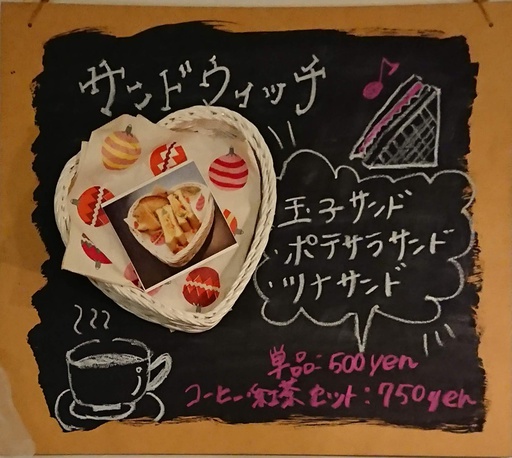 サンドウィッチ
玉子サンド
・ポテサラサンド
・ツナサンド
単品:500yen
コーヒー・紅茶セット:750yen